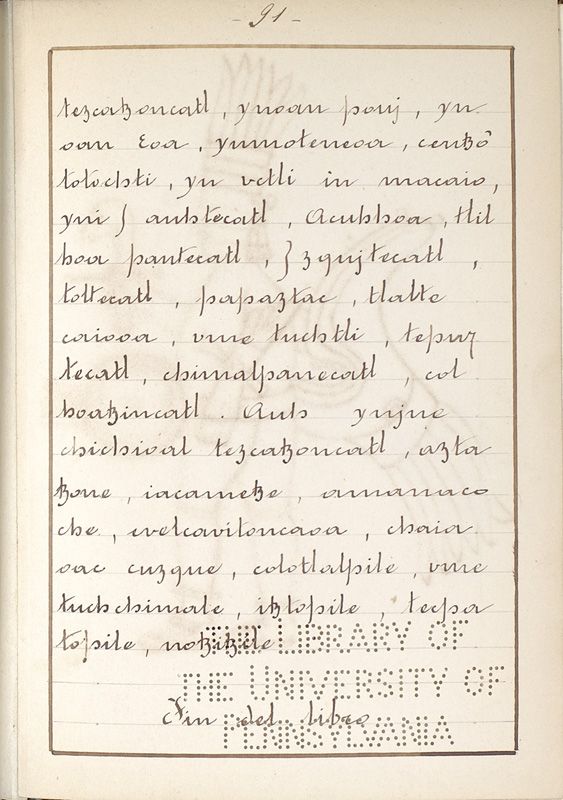 - 91 -
tezcatzoncatl, ynoan pouj, yn
oan Eoa, ynmoteneoa, centzõ
totochti, yn vctli in macaio,
yni } auhtecatl, Acuhhoa, tlil
hoa pantecatl, } zqujtecatl,
toltecatl, papaztac, tlalte
caiooa, vme tuchtli, tepuz
tecatl, chimalpanecatl, col
hoatzincatl. Auh ynjne
chichioal tezcatzoncatl, azta
tzone, iacametze, amamaco
che, cvelcaviloncaoa, chaia
oac cuzque, colotlalpile, vme
tuchchimale, itztopile, tecpa
topile, notzitzile
THE LIBRARY OF
THE UNIVERSITY OF
Fin del libro
PENNSYLVANIA